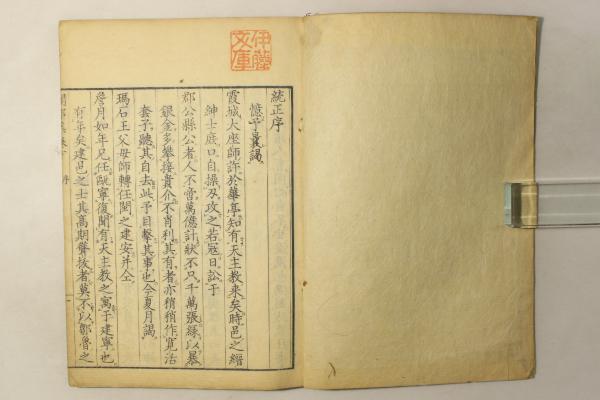 伊藤
文庫
統正序
憶予曩謁
霞城大座師許於華亭知有天主教来矣時邑之縉
紳士庶口自操及攻之若寇日訟于
郡公縣公者人不啻萬億計狀不只千萬張縁以暴
銀金多攀接貴介不肖利其有者亦稍稍作寛活
套子聽其自去此予目擊其事也今夏月謁
瑪石王父母師轉任閩之建安并仝
詹月如年兄任甌寧復聞有天主教之寓于建寧也
有年矣建邑之士其高期聲抜者莫不以鄒魯之
序